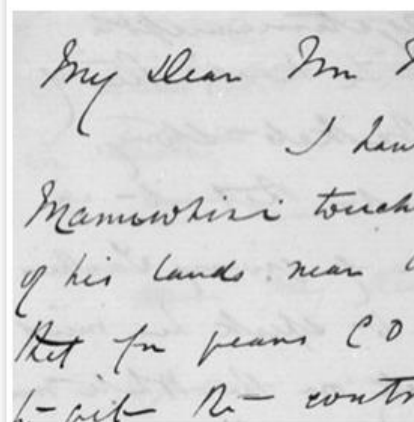 My Dear Mr
I hav
Manuwhiri touch
of his lands near
that for years C O
to get the contr